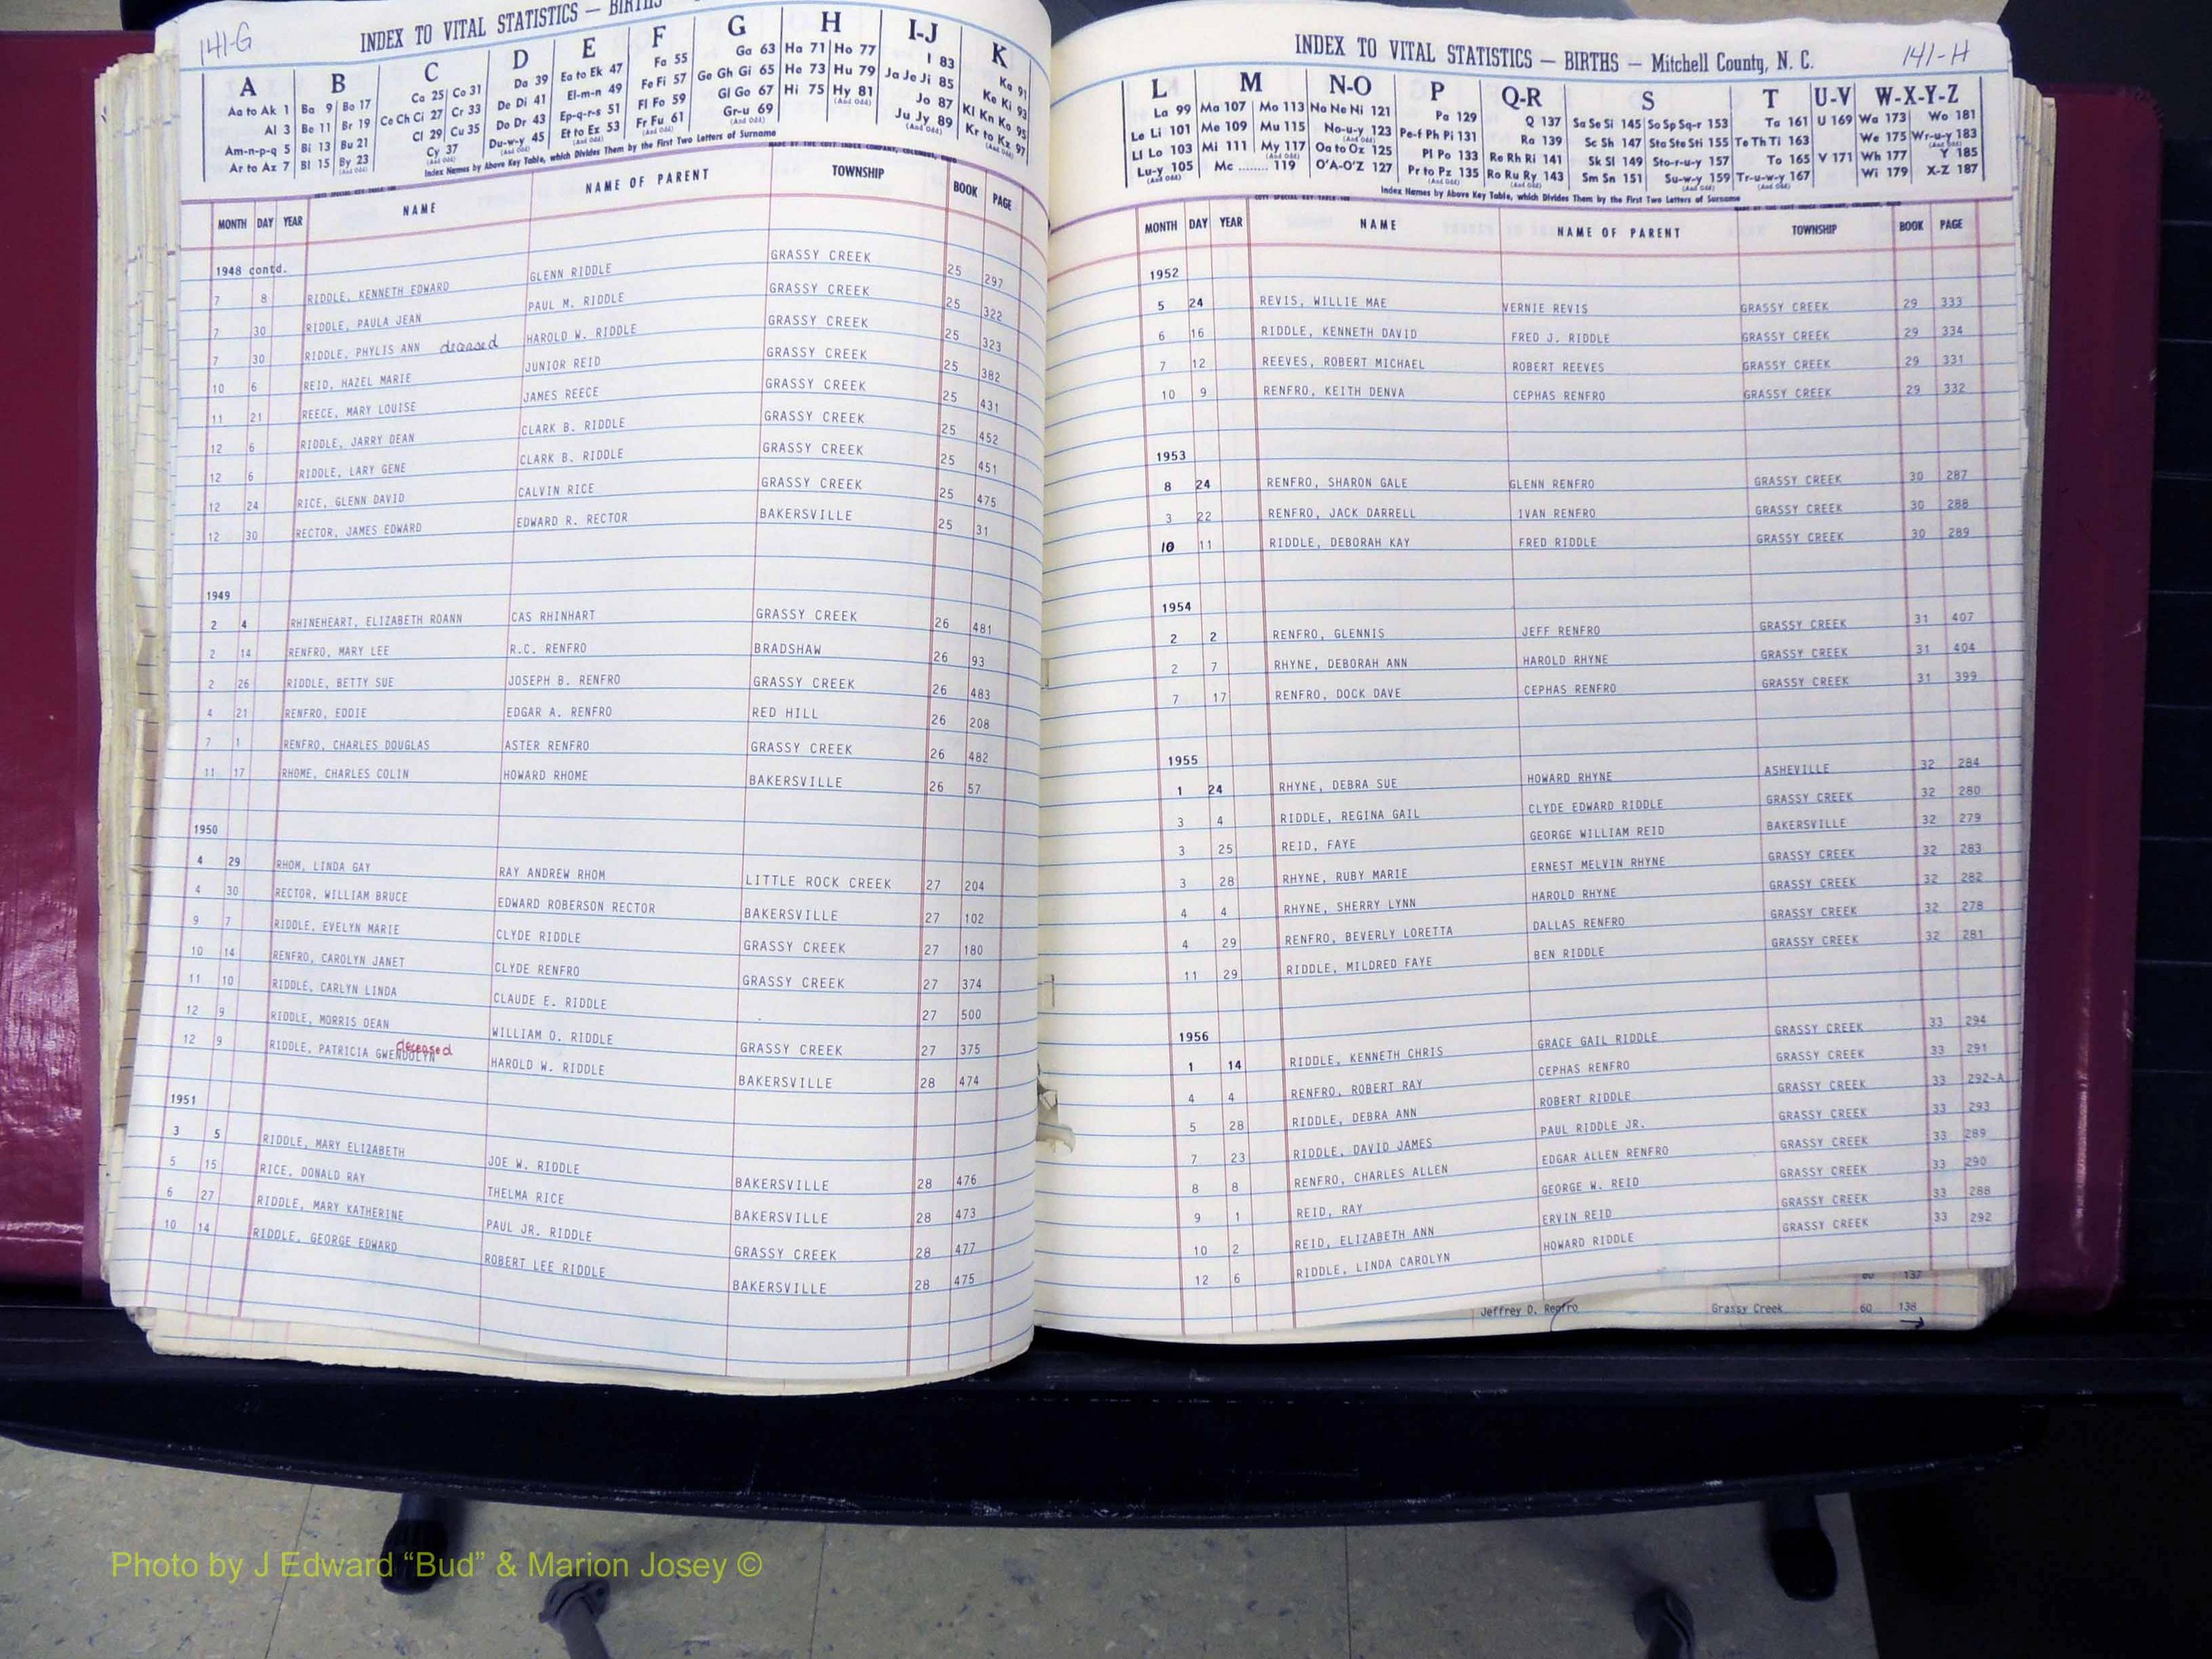 141-G
INDEX TO VITAL STATISTICS — BIRTHS
A B C D E F G H I-J K
Aa to Ak 1 Ba 9 Bo 17 Ca 25 Co 31 Da 39 Ea to Ek 47 Fa 55 Ga 63 Ha 71 Ho 77 I 83 Ka 91
Al 3 Be 11 Br 19 Ce Ch Ci 27 Cr 33 De Di 41 El-m-n 49 Fe Fi 57 Ge Gh Gi 65 He 73 Hu 79 Ja Je Ji 85 Ke Ki 93
Am-n-p-q 5 Bi 13 Bu 21 Cl 29 Cu 35 Do Dr 43 Ep-q-r-s 51 Fl Fo 59 Gl Go 67 Hi 75 Hy 81 Jo 87 Kl Kn Ko 95
Ar to Az 7 Bl 15 By 23 Cy 37 Du-w-y 45 Et to Ez 53 Fr Fu 61 Gr-u 69 Ju Jy 89 Kr to Kz 97
Index Names by Above Key Table, which Divides Them by the First Two Letters of Surname
MONTH DAY YEAR NAME NAME OF PARENT TOWNSHIP BOOK PAGE
1948 contd.
7 8 RIDDLE, KENNETH EDWARD GLENN RIDDLE GRASSY CREEK 25 297
7 30 RIDDLE, PAULA JEAN PAUL M. RIDDLE GRASSY CREEK 25 322
7 30 RIDDLE, PHYLIS ANN deceased HAROLD W. RIDDLE GRASSY CREEK 25 323
10 6 REID, HAZEL MARIE JUNIOR REID GRASSY CREEK 25 382
11 21 REECE, MARY LOUISE JAMES REECE GRASSY CREEK 25 431
12 6 RIDDLE, JARRY DEAN CLARK B. RIDDLE GRASSY CREEK 25 452
12 6 RIDDLE, LARY GENE CLARK B. RIDDLE GRASSY CREEK 25 451
12 24 RICE, GLENN DAVID CALVIN RICE GRASSY CREEK 25 475
12 30 RECTOR, JAMES EDWARD EDWARD R. RECTOR BAKERSVILLE 25 31
1949
2 4 RHINEHEART, ELIZABETH ROANN CAS RHINHART GRASSY CREEK 26 481
2 14 RENFRO, MARY LEE R.C. RENFRO BRADSHAW 26 93
2 26 RIDDLE, BETTY SUE JOSEPH B. RENFRO GRASSY CREEK 26 483
4 21 RENFRO, EDDIE EDGAR A. RENFRO RED HILL 26 208
7 1 RENFRO, CHARLES DOUGLAS ASTER RENFRO GRASSY CREEK 26 482
11 17 RHOME, CHARLES COLIN HOWARD RHOME BAKERSVILLE 26 57
1950
4 29 RHOM, LINDA GAY RAY ANDREW RHOM LITTLE ROCK CREEK 27 204
4 30 RECTOR, WILLIAM BRUCE EDWARD ROBERSON RECTOR BAKERSVILLE 27 102
9 7 RIDDLE, EVELYN MARIE CLYDE RIDDLE GRASSY CREEK 27 180
10 14 RENFRO, CAROLYN JANET CLYDE RENFRO GRASSY CREEK 27 374
11 10 RIDDLE, CARLYN LINDA CLAUDE E. RIDDLE 27 500
12 9 RIDDLE, MORRIS DEAN WILLIAM O. RIDDLE GRASSY CREEK 27 375
12 9 RIDDLE, PATRICIA GWENDOLYN deceased HAROLD W. RIDDLE BAKERSVILLE 28 474
1951
3 5 RIDDLE, MARY ELIZABETH JOE W. RIDDLE BAKERSVILLE 28 476
5 15 RICE, DONALD RAY THELMA RICE BAKERSVILLE 28 473
6 27 RIDDLE, MARY KATHERINE PAUL JR. RIDDLE GRASSY CREEK 28 477
10 14 RIDDLE, GEORGE EDWARD ROBERT LEE RIDDLE BAKERSVILLE 28 475
INDEX TO VITAL STATISTICS — BIRTHS — Mitchell County, N. C. 141-H
L M N-O P Q-R S T U-V W-X-Y-Z
La 99 Ma 107 Mo 113 Na Ne Ni 121 Pa 129 Q 137 Sa Se Si 145 So Sp Sq-r 153 Ta 161 U 169 Wa 173 Wo 181
Le Li 101 Me 109 Mu 115 No-u-y 123 Pe-f Ph Pi 131 Ra 139 Sc Sh 147 Sta Ste Sti 155 Te Th Ti 163 We 175 Wr-u-y 183
Ll Lo 103 Mi 111 My 117 Oa to Oz 125 Pl Po 133 Re Rh Ri 141 Sk Sl 149 Sto-r-u-y 157 To 165 V 171 Wh 177 Y 185
Lu-y 105 Mc ........ 119 O'A-O'Z 127 Pr to Pz 135 Ro Ru Ry 143 Sm Sn 151 Su-w-y 159 Tr-u-w-y 167 Wi 179 X-Z 187
Index Names by Above Key Table, which Divides Them by the First Two Letters of Surname
MONTH DAY YEAR NAME NAME OF PARENT TOWNSHIP BOOK PAGE
1952
5 24 REVIS, WILLIE MAE VERNIE REVIS GRASSY CREEK 29 333
6 16 RIDDLE, KENNETH DAVID FRED J. RIDDLE GRASSY CREEK 29 334
7 12 REEVES, ROBERT MICHAEL ROBERT REEVES GRASSY CREEK 29 331
10 9 RENFRO, KEITH DENVA CEPHAS RENFRO GRASSY CREEK 29 332
1953
8 24 RENFRO, SHARON GALE GLENN RENFRO GRASSY CREEK 30 287
3 22 RENFRO, JACK DARRELL IVAN RENFRO GRASSY CREEK 30 288
10 11 RIDDLE, DEBORAH KAY FRED RIDDLE GRASSY CREEK 30 289
1954
2 2 RENFRO, GLENNIS JEFF RENFRO GRASSY CREEK 31 407
2 7 RHYNE, DEBORAH ANN HAROLD RHYNE GRASSY CREEK 31 404
7 17 RENFRO, DOCK DAVE CEPHAS RENFRO GRASSY CREEK 31 399
1955
1 24 RHYNE, DEBRA SUE HOWARD RHYNE ASHEVILLE 32 284
3 4 RIDDLE, REGINA GAIL CLYDE EDWARD RIDDLE GRASSY CREEK 32 280
3 25 REID, FAYE GEORGE WILLIAM REID BAKERSVILLE 32 279
3 28 RHYNE, RUBY MARIE ERNEST MELVIN RHYNE GRASSY CREEK 32 283
4 4 RHYNE, SHERRY LYNN HAROLD RHYNE GRASSY CREEK 32 282
4 29 RENFRO, BEVERLY LORETTA DALLAS RENFRO GRASSY CREEK 32 278
11 29 RIDDLE, MILDRED FAYE BEN RIDDLE GRASSY CREEK 32 281
1956
1 14 RIDDLE, KENNETH CHRIS GRACE GAIL RIDDLE GRASSY CREEK 33 294
4 4 RENFRO, ROBERT RAY CEPHAS RENFRO GRASSY CREEK 33 291
5 28 RIDDLE, DEBRA ANN ROBERT RIDDLE GRASSY CREEK 33 292-A
7 23 RIDDLE, DAVID JAMES PAUL RIDDLE JR. GRASSY CREEK 33 293
8 8 RENFRO, CHARLES ALLEN EDGAR ALLEN RENFRO GRASSY CREEK 33 289
9 1 REID, RAY GEORGE W. REID GRASSY CREEK 33 290
10 2 REID, ELIZABETH ANN ERVIN REID GRASSY CREEK 33 288
12 6 RIDDLE, LINDA CAROLYN HOWARD RIDDLE GRASSY CREEK 33 292
60 137
Jeffrey D. Renfro Grassy Creek 60 138
Photo by J Edward “Bud” & Marion Josey ©